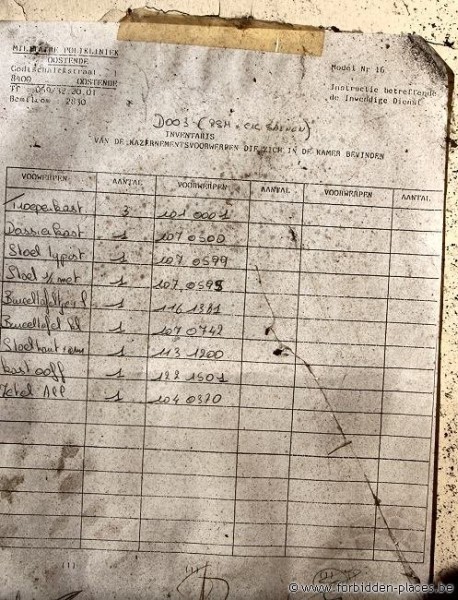 MILITAIRE POLIKLINIEK
OOSTENDE
Godtschalckstraat 1
8400 OOSTENDE
Tf 059/32.20.01
Bemilcom : 2830
Model Nr 16
Instructie betreffende
de Inwendige Dienst
D003
INVENTARIS
VAN DE KAZERNEMENTSVOORWERPEN DIE ZICH IN DE KAMER BEVINDEN
VOORWERPEN AANTAL VOORWERPEN AANTAL VOORWERPEN AANTAL
Troepenkast 3 101 0001
Dossierkast 1 107 0500
Stoel typist 1 107 0599
Stoel 1/2 met 1 107 0595
1 116 1381
1 107 0742
1 113 1200
Kast 1 122 1501
Zetel 1 104 0370
(1) (1)
© www.forbidden-places.be